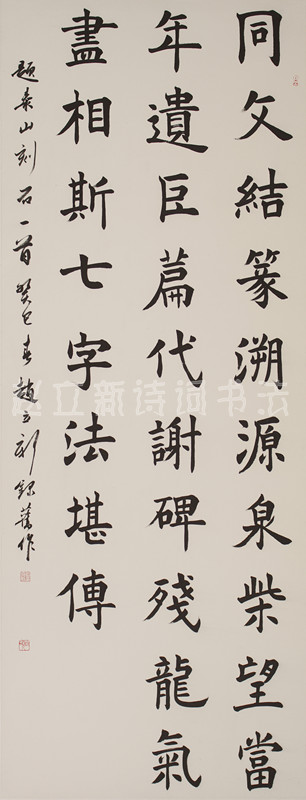 同文結篆溯源泉柴望當
年遺巨篇代謝碑殘龍氣
盡相斯七字法堪傳
題泰山刻石一首癸巳春趙立新錄舊作
赵立新诗词书法